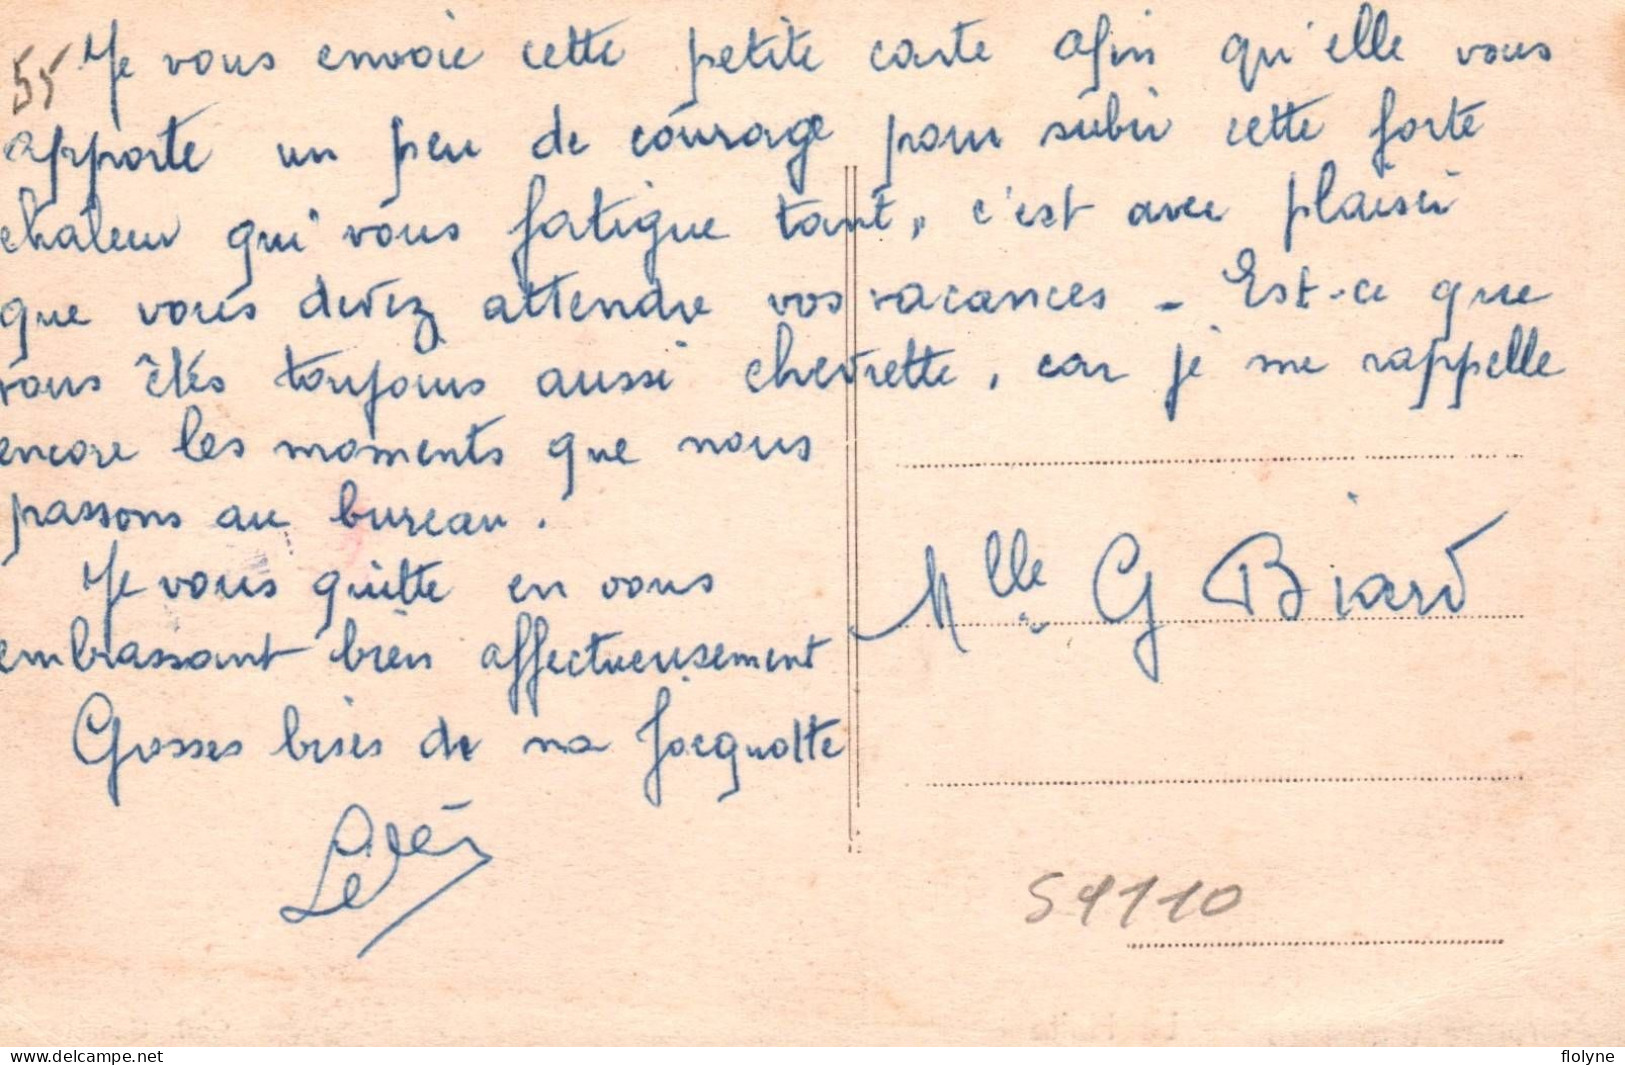 55 Je vous envoie cette petite carte afin qu'elle vous
apporte un peu de courage pour subir cette forte
chaleur qui vous fatigue tant, c'est avec plaisir
que vous devez attendre vos vacances - Est-ce que
vous êtes toujours aussi chevrette, car je me rappelle
encore les moments que nous
passons au bureau.
Je vous quitte en vous
embrassant bien affectueusement
Grosses bises de ma Jacquotte
Mlle G Biard
59110
delcampe.net
flolyne